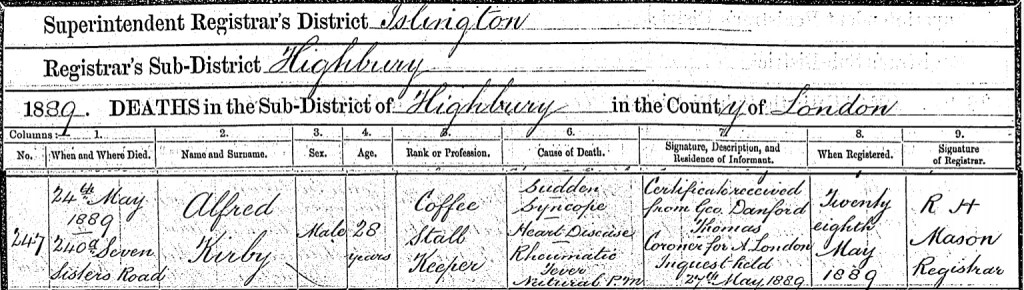 Superintendent Registrar's District Islington
Registrar's Sub-District Highbury
1889. DEATHS in the Sub-District of Highbury in the County of London
Columns:— 1. 2. 3. 4. 5. 6. 7. 8. 9.
No. When and Where Died. Name and Surname. Sex. Age. Rank or Profession. Cause of Death. Signature, Description, and Residence of Informant. When Registered. Signature of Registrar.
247
24th May
1889
240a Seven
Sisters Road
Alfred
Kirby
Male
28
years
Coffee
Stall
Keeper
Sudden
Syncope
Heart Disease
Rheumatic
Fever
Natural P.m
Certificate received
from Geo. Danford
Thomas
Coroner for A. London
Inquest held
27th May 1889.
Twenty
eighth
May
1889
R H
Mason
Registrar